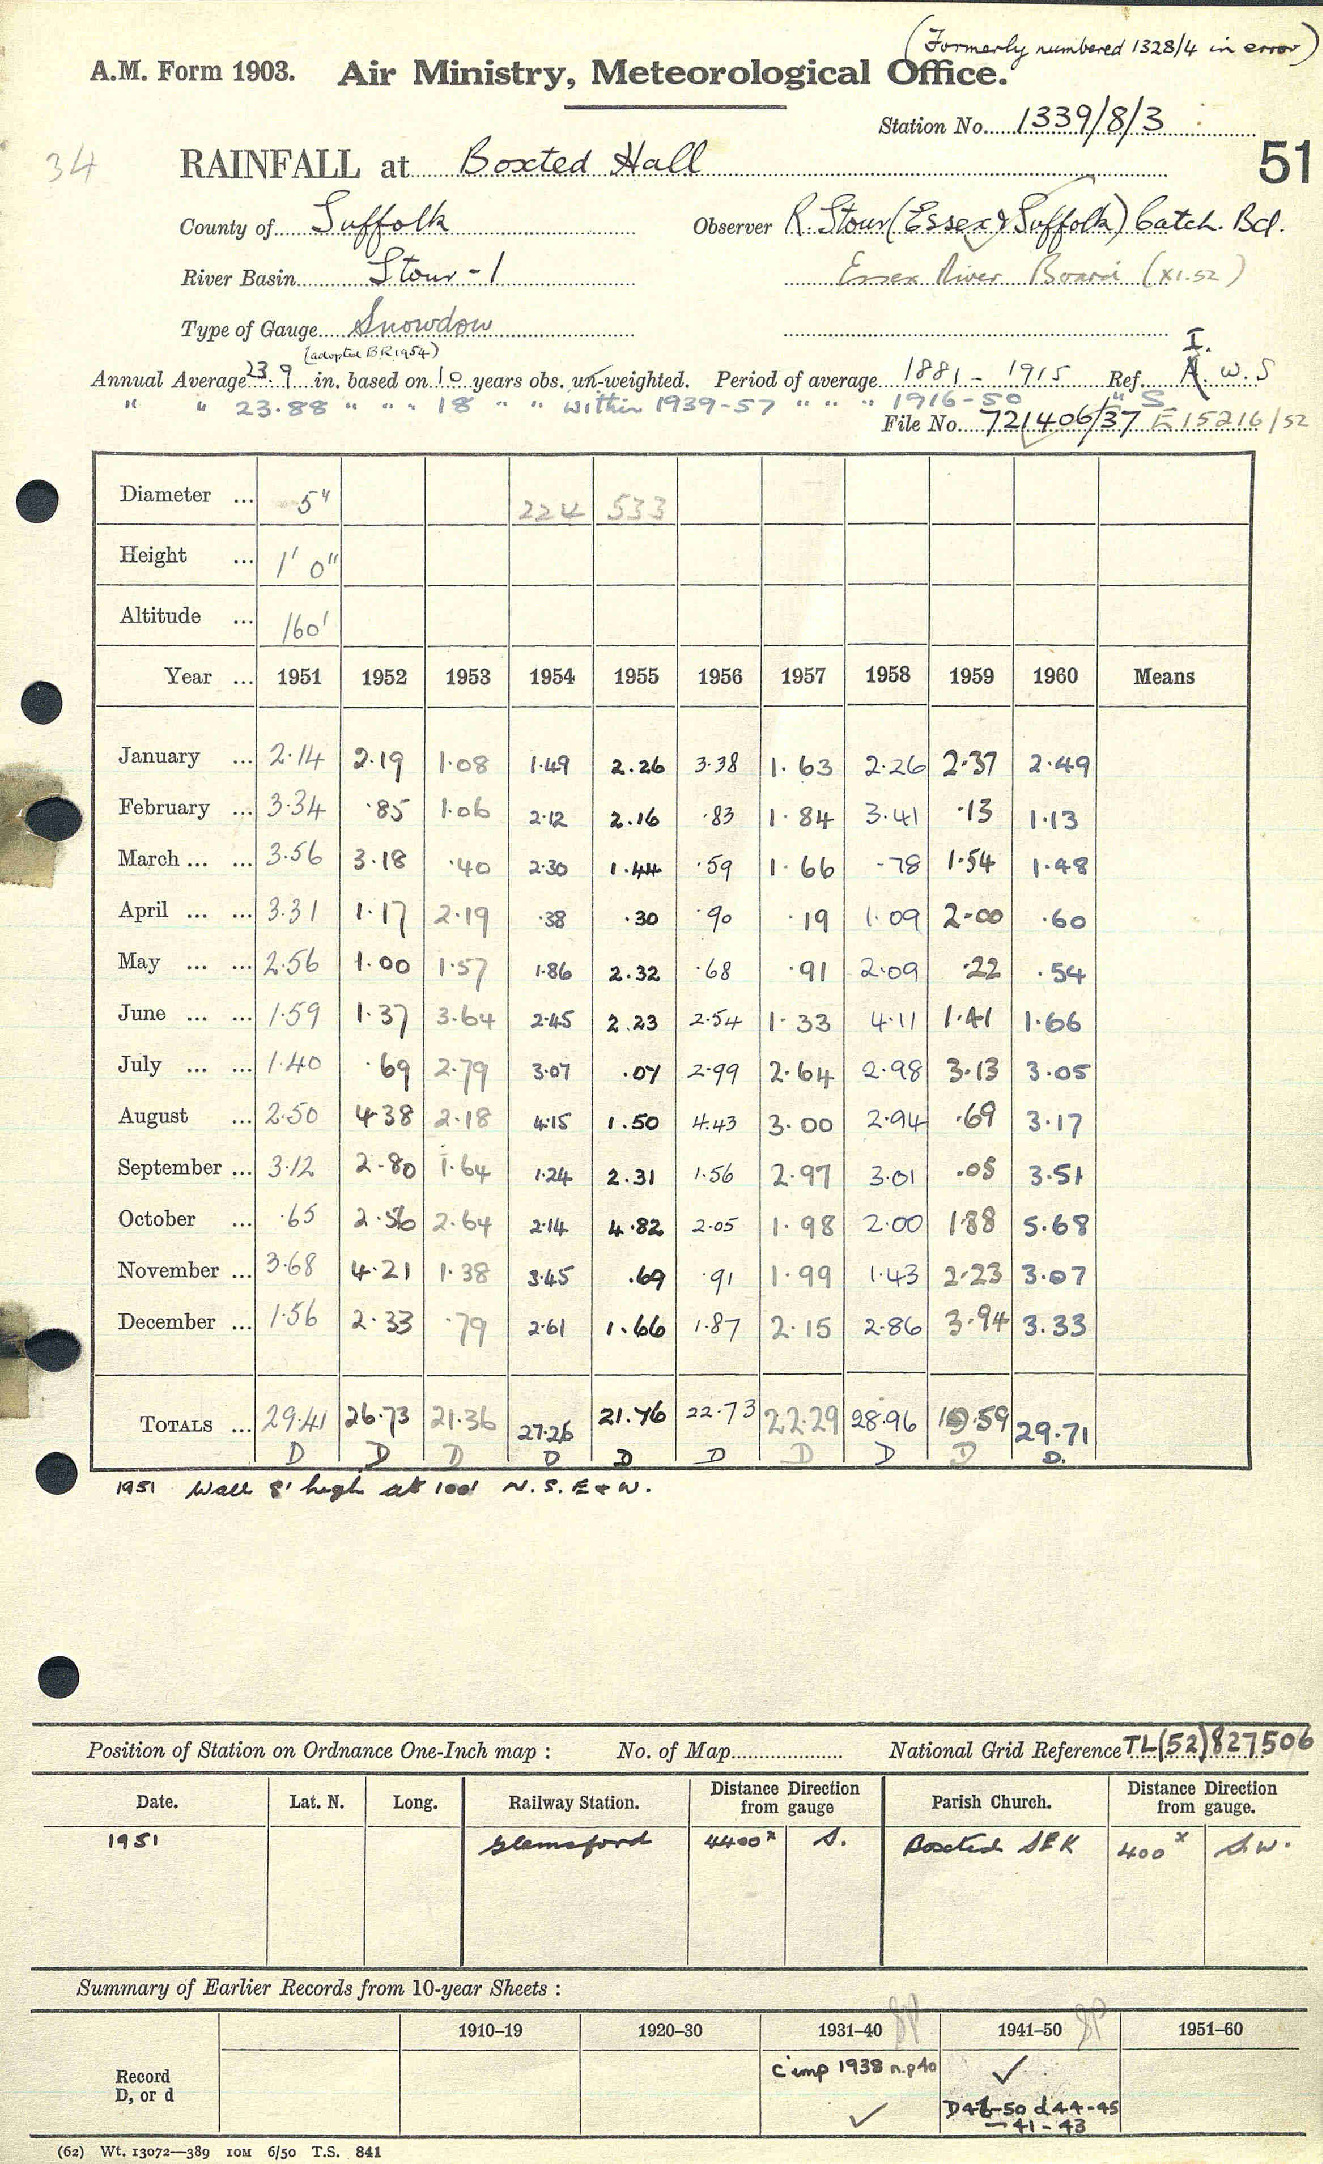 (Formerly numbered 1328/4 in error)
A.M. Form 1903. Air Ministry, Meteorological Office.
Station No. 1339/8/3
34 RAINFALL at Boxted Hall 51
County of Suffolk Observer R. Stour (Essex & Suffolk) Catch. Bd.
River Basin Stour-1 Essex River Board (XI.52)
Type of Gauge Snowdon
(adopted BR 1954) I.
Annual Average 23.9 in. based on 10 years obs. un-weighted. Period of average 1881 - 1915 Ref. A w. S
" " 23.88 " " " 18 " " within 1939-57 " " " 1916-50 " S
File No. 721406/37 E15216/52
Diameter ... 5" 224 533
Height ... 1' 0"
Altitude ... 160'
Year ... 1951 1952 1953 1954 1955 1956 1957 1958 1959 1960 Means
January ... 2.14 2.19 1.08 1.49 2.26 3.38 1.63 2.26 2.37 2.49
February ... 3.34 .85 1.06 2.12 2.16 .83 1.84 3.41 .13 1.13
March ... ... 3.56 3.18 .40 2.30 1.44 .59 1.66 .78 1.54 1.48
April ... ... 3.31 1.17 2.19 .38 .30 .90 .19 1.09 2.00 .60
May ... ... 2.56 1.00 1.57 1.86 2.32 .68 .91 2.09 .22 .54
June ... ... 1.59 1.37 3.64 2.45 2.23 2.54 1.33 4.11 1.41 1.66
July ... ... 1.40 .69 2.79 3.07 .07 2.99 2.64 2.98 3.13 3.05
August ... 2.50 4.38 2.18 4.15 1.50 4.43 3.00 2.94 .69 3.17
September ... 3.12 2.80 1.64 1.24 2.31 1.56 2.97 3.01 .05 3.51
October ... .65 2.56 2.64 2.14 4.82 2.05 1.98 2.00 1.88 5.68
November ... 3.68 4.21 1.38 3.45 .69 .91 1.99 1.43 2.23 3.07
December ... 1.56 2.33 .79 2.61 1.66 1.87 2.15 2.86 3.94 3.33
TOTALS ... 29.41 26.73 21.36 27.26 21.76 22.73 22.29 28.96 19.59 29.71
D D D D D D D D D D.
1951 Wall 8' high at 100' N. S. E & W.
Position of Station on Ordnance One-Inch map : No. of Map National Grid Reference TL(52)827506
Date. Lat. N. Long. Railway Station. Distance Direction from gauge Parish Church. Distance Direction from gauge.
1951 Glemsford 4400x S. Boxted SFK 400x S.W.
Summary of Earlier Records from 10-year Sheets :
1910–19 1920–30 1931–40 1941–50 1951–60
Record
D, or d
c imp 1938 n.p 40 ✓
✓ D46-50 d 44-45
— 41-43
(62) Wt. 13072—389 10M 6/50 T.S. 841